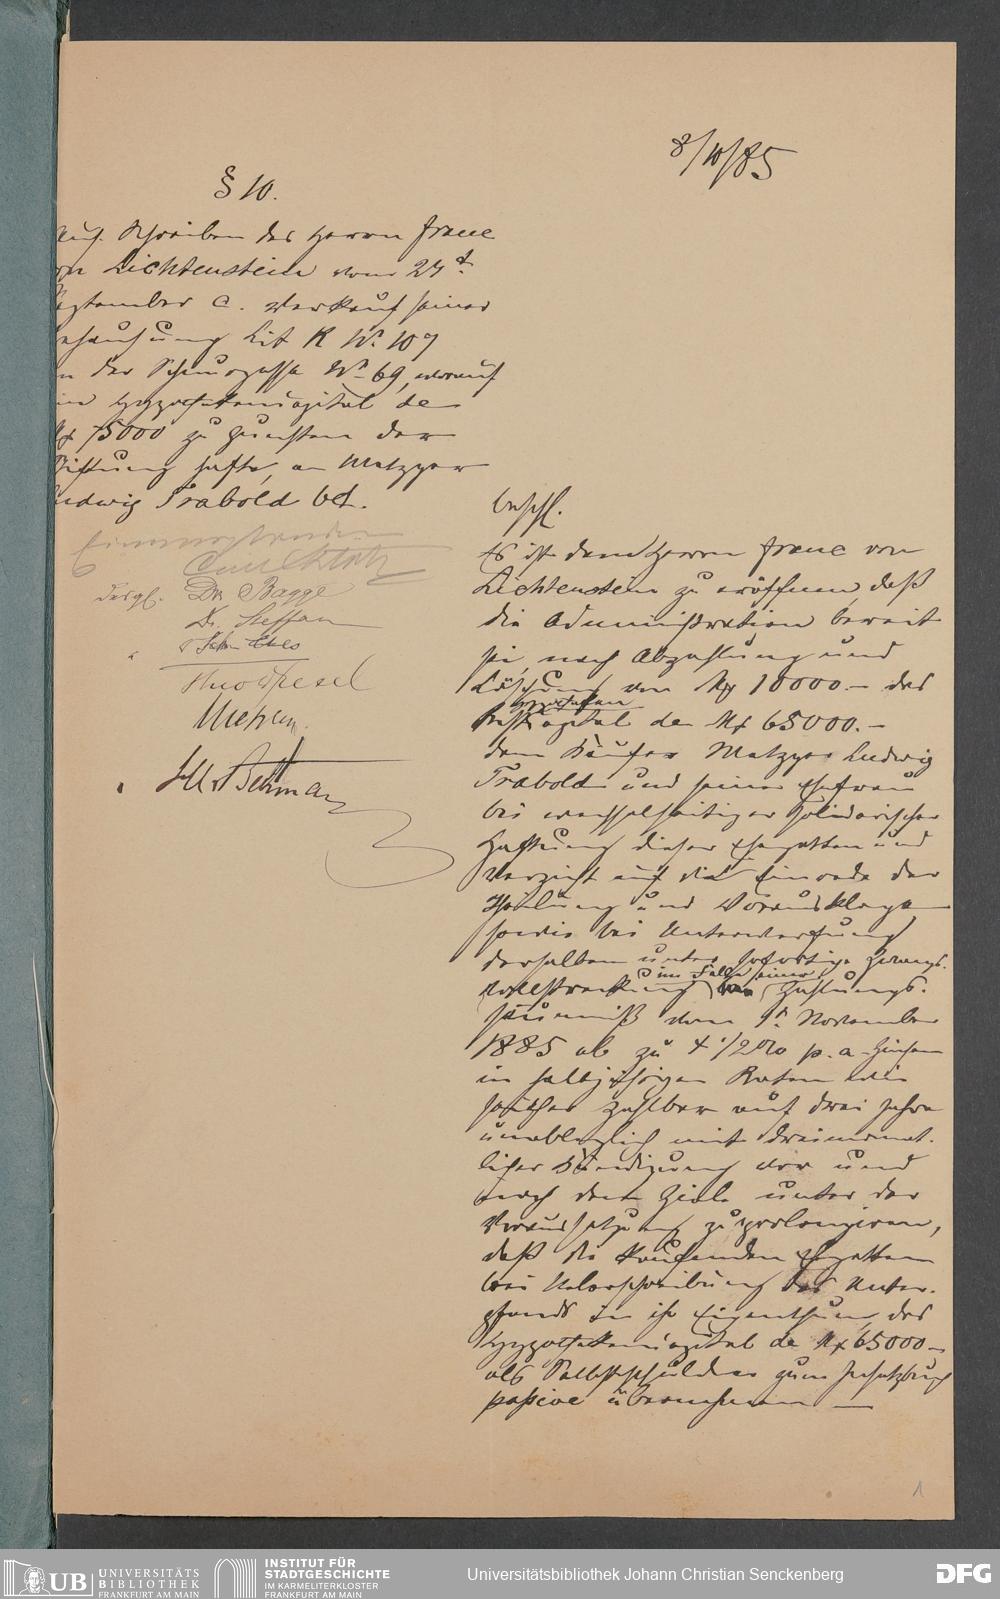 8/10/85
§ 10.
Auf Schreiben des Herrn Franc
von Lichtenstein vom 24t
September c. Verkauf seiner
Behausung Lit K No. 107
in der Schnurgasse No 69, worauf
ein Hypothekencapital de
M 75000 zu Gunsten der
Stiftung hafte, an Metzger
Ludwig Trabold bet.
Einverstanden
Carl Klotz
desgl. Dr. Bagge
Dr. Steffan
Theod Pesel
beschl.
Es ist dem Herrn Franc von
Lichtenstein zu eröffnen, daß
die Administration bereit
sei, nach Abzahlung und
Löschung von M 10000.– das
Hypotheken
Restcapital de M 65000.–
dem Käufer Metzger Ludwig
Trabold und seiner Ehefrau
bei wechselseitiger solidarischer
Haftung dieser Ehegatten und
Verzicht auf die Einrede der
Theilung und Vorausklage
sowie bei Unterwerfung
derselben unter sofortige Zwangs-
im Falle einer
vollstreckung Zahlungs-
säumniß vom 1t. November
1885 ab zu 4 1/2 % p. a. Zinsen
in halbjährigen Raten wie
seither zahlbar auf drei Jahre
unableglich mit dreimonat-
licher Kündigung vor und
nach dem Ziele unter der
Voraussetzung zu prolongiren,
daß die kaufenden Ehegatten
bei Ueberschreibung des Unter-
pfands in ihr Eigenthum das
Hypothekencapital de M 65000.–
als Selbstschuldner zum Insatzbuch
passive übernehmen —
1
UB UNIVERSITÄTS
BIBLIOTHEK
FRANKFURT AM MAIN
INSTITUT FÜR
STADTGESCHICHTE
IM KARMELITERKLOSTER
FRANKFURT AM MAIN
Universitätsbibliothek Johann Christian Senckenberg
DFG